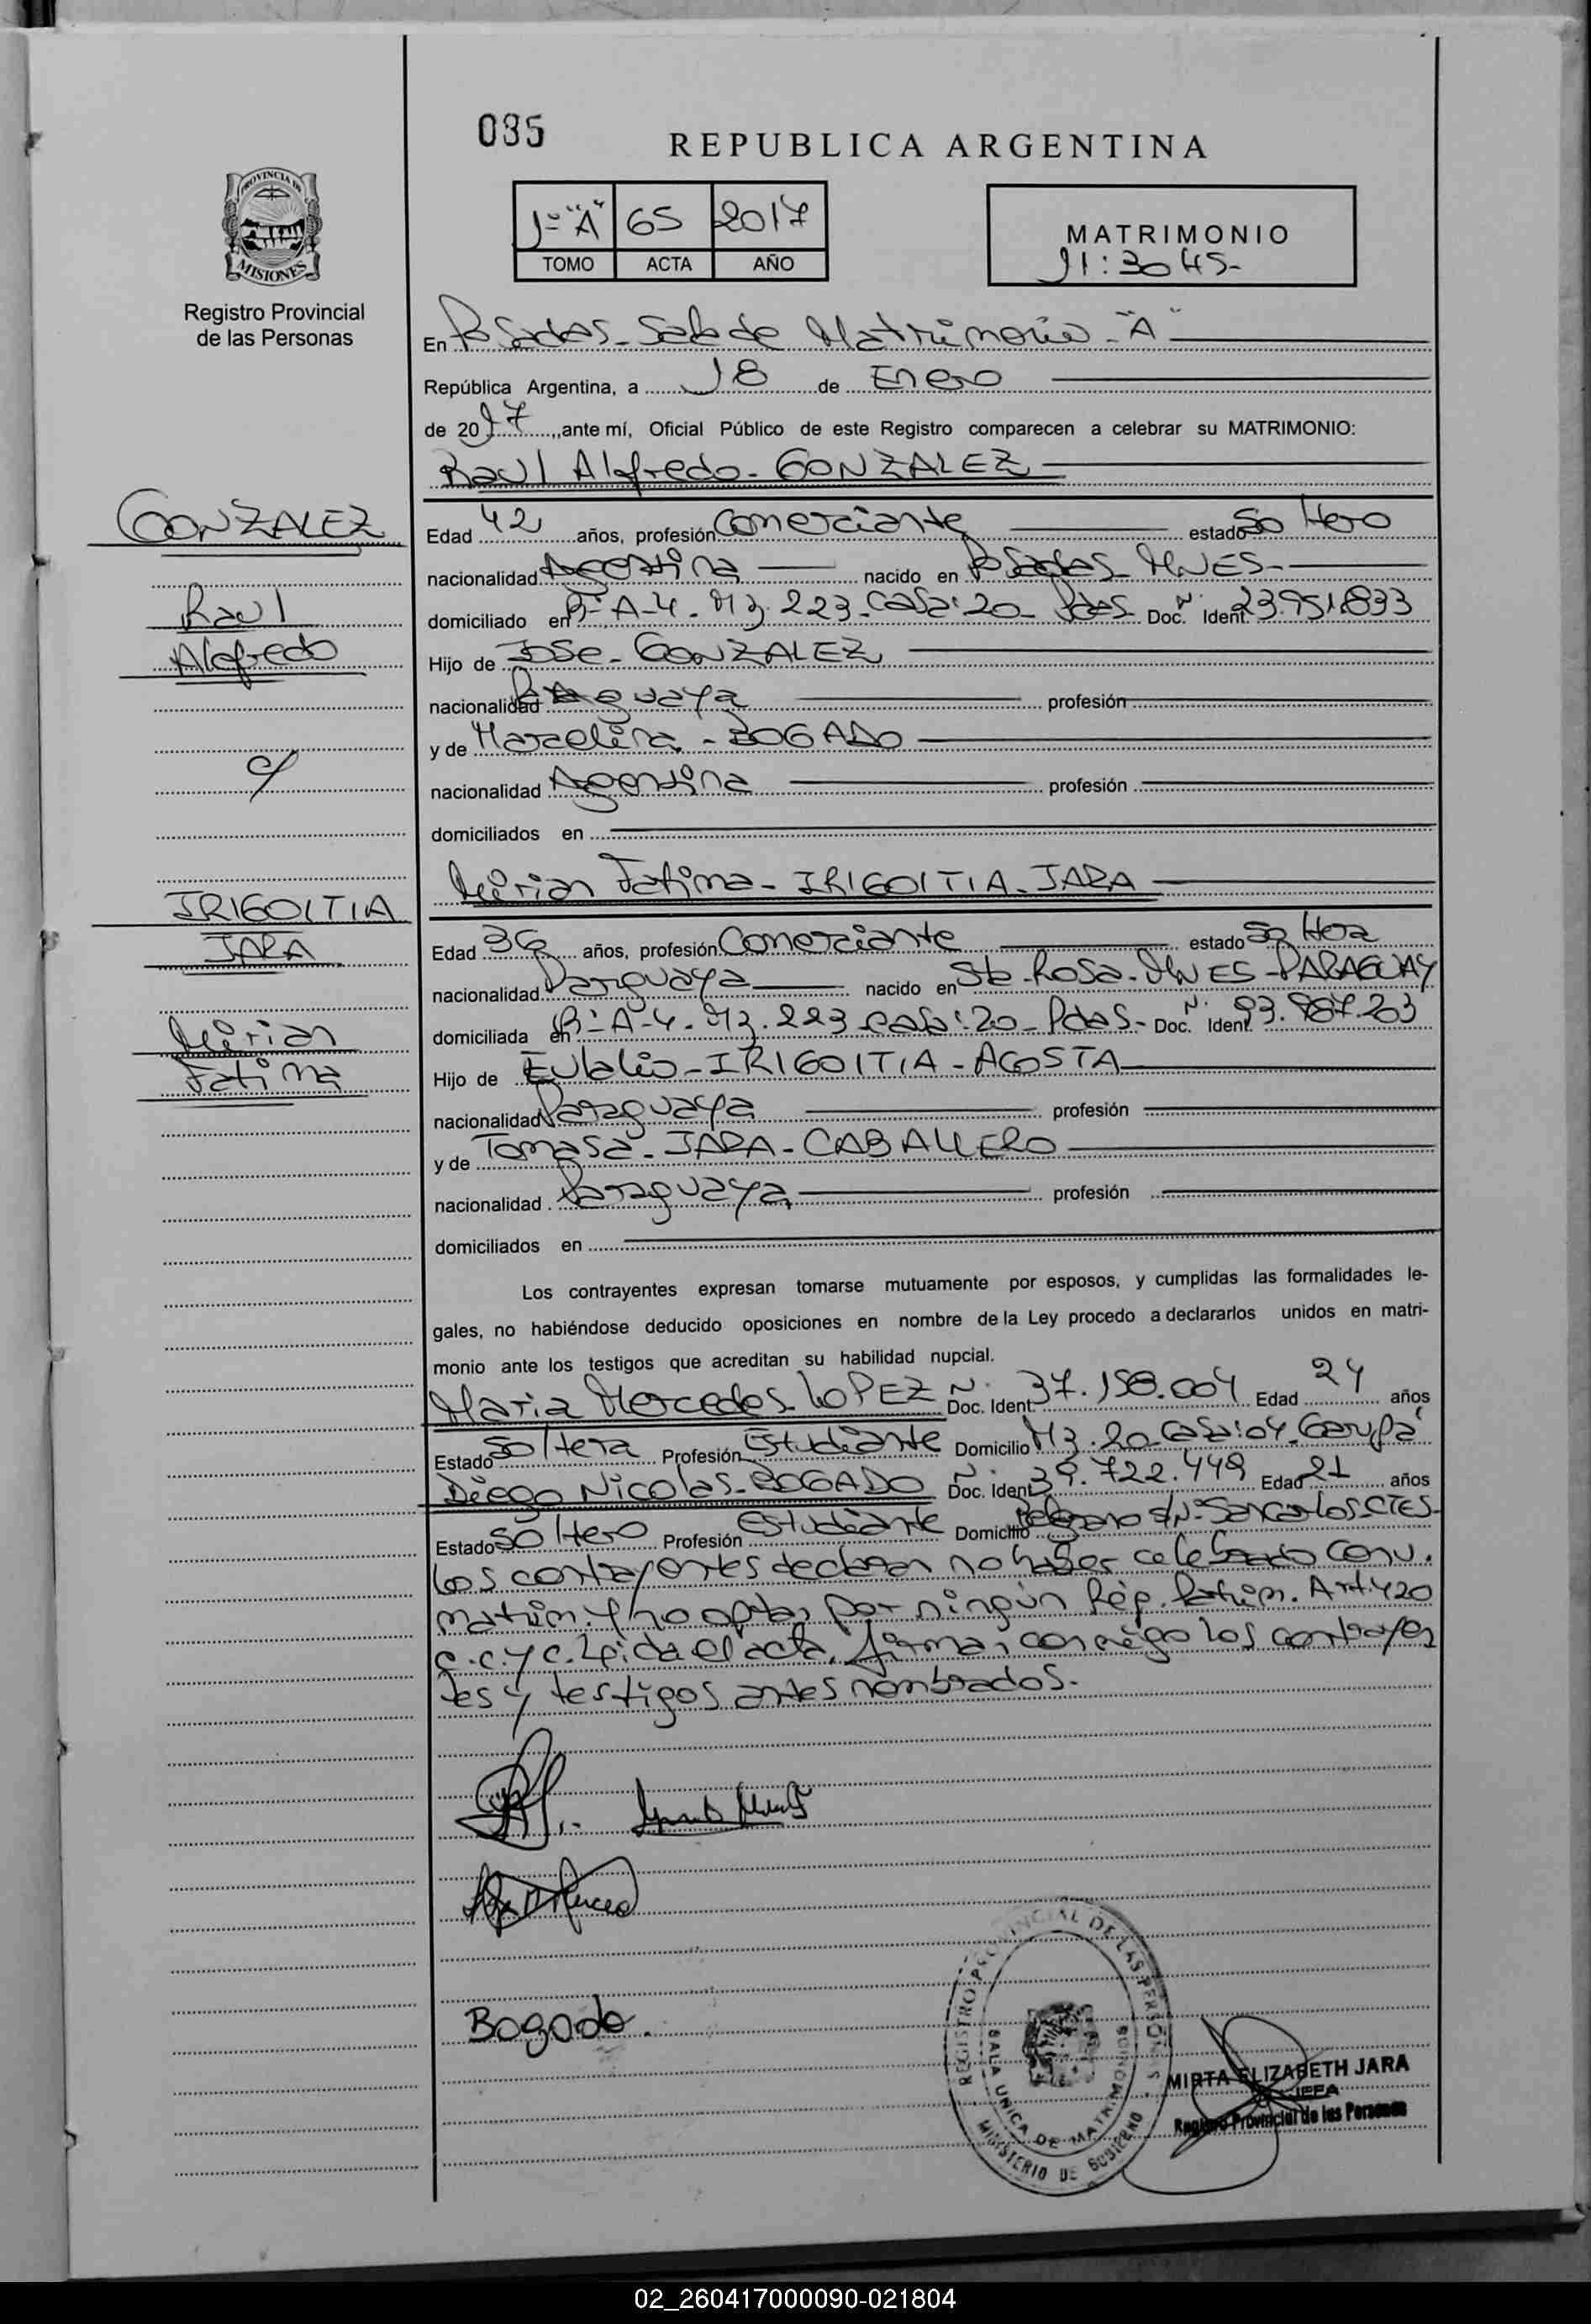 035
REPUBLICA ARGENTINA
PROVINCIA DE
MISIONES
Registro Provincial
de las Personas
1º "A" 65 2017
TOMO ACTA AÑO
MATRIMONIO
11:3045-
En Posadas - Sala de Matrimonio - "A"
República Argentina, a 18 de Enero
de 2017, ante mí, Oficial Público de este Registro comparecen a celebrar su MATRIMONIO:
Raul Alfredo - GONZALEZ
GONZALEZ
Raul
Alfredo
c/
Edad 42 años, profesión Comerciante estado Soltero
nacionalidad Argentina nacido en Posadas - MNES -
domiciliado en Bº A-4. Mz. 223 - Casa: 20 - Pdas - Doc. Ident. Nº 23.951.833
Hijo de Jose - GONZALEZ
nacionalidad Paraguaya profesión
y de Marcelina - BOGADO
nacionalidad Argentina profesión
domiciliados en
Mirian Fatima - IRIGOITIA - JARA
IRIGOITIA
JARA
Mirian
Fatima
Edad 36 años, profesión Comerciante estado Soltera
nacionalidad Paraguaya nacido en Sta. Rosa - MNES - PARAGUAY
domiciliada en Bº A-4. Mz. 223 - Casa: 20 - Pdas - Doc. Ident. Nº 93.987.203
Hijo de Eulalio - IRIGOITIA - ACOSTA
nacionalidad Paraguaya profesión
y de Tomasa - JARA - CABALLERO
nacionalidad Paraguaya profesión
domiciliados en
Los contrayentes expresan tomarse mutuamente por esposos, y cumplidas las formalidades le-
gales, no habiéndose deducido oposiciones en nombre de la Ley procedo a declararlos unidos en matri-
monio ante los testigos que acreditan su habilidad nupcial.
Maria Mercedes LOPEZ Doc. Ident. Nº 37.158.004 Edad 24 años
Estado Soltera Profesión Estudiante Domicilio Mz. 20 - Casa: 04 - Garupá
Diego Nicolas - BOGADO Doc. Ident. Nº 39.722.449 Edad 21 años
Estado Soltero Profesión Estudiante Domicilio Belgrano s/Nº San Carlos - CTES -
Los contrayentes declaran no haber celebrado conv.
matrim. y no optan por ningún Rég. Patrim. Art. 420
C.C. y C. Leida el acta, firman conmigo los contrayen
tes y testigos antes nombrados.
Bogado.
REGISTRO PROVINCIAL DE LAS PERSONAS
SALA UNICA DE MATRIMONIOS
MINISTERIO DE GOBIERNO
MIRTA ELIZABETH JARA
JEFA
Registro Provincial de las Personas
02_260417000090-021804